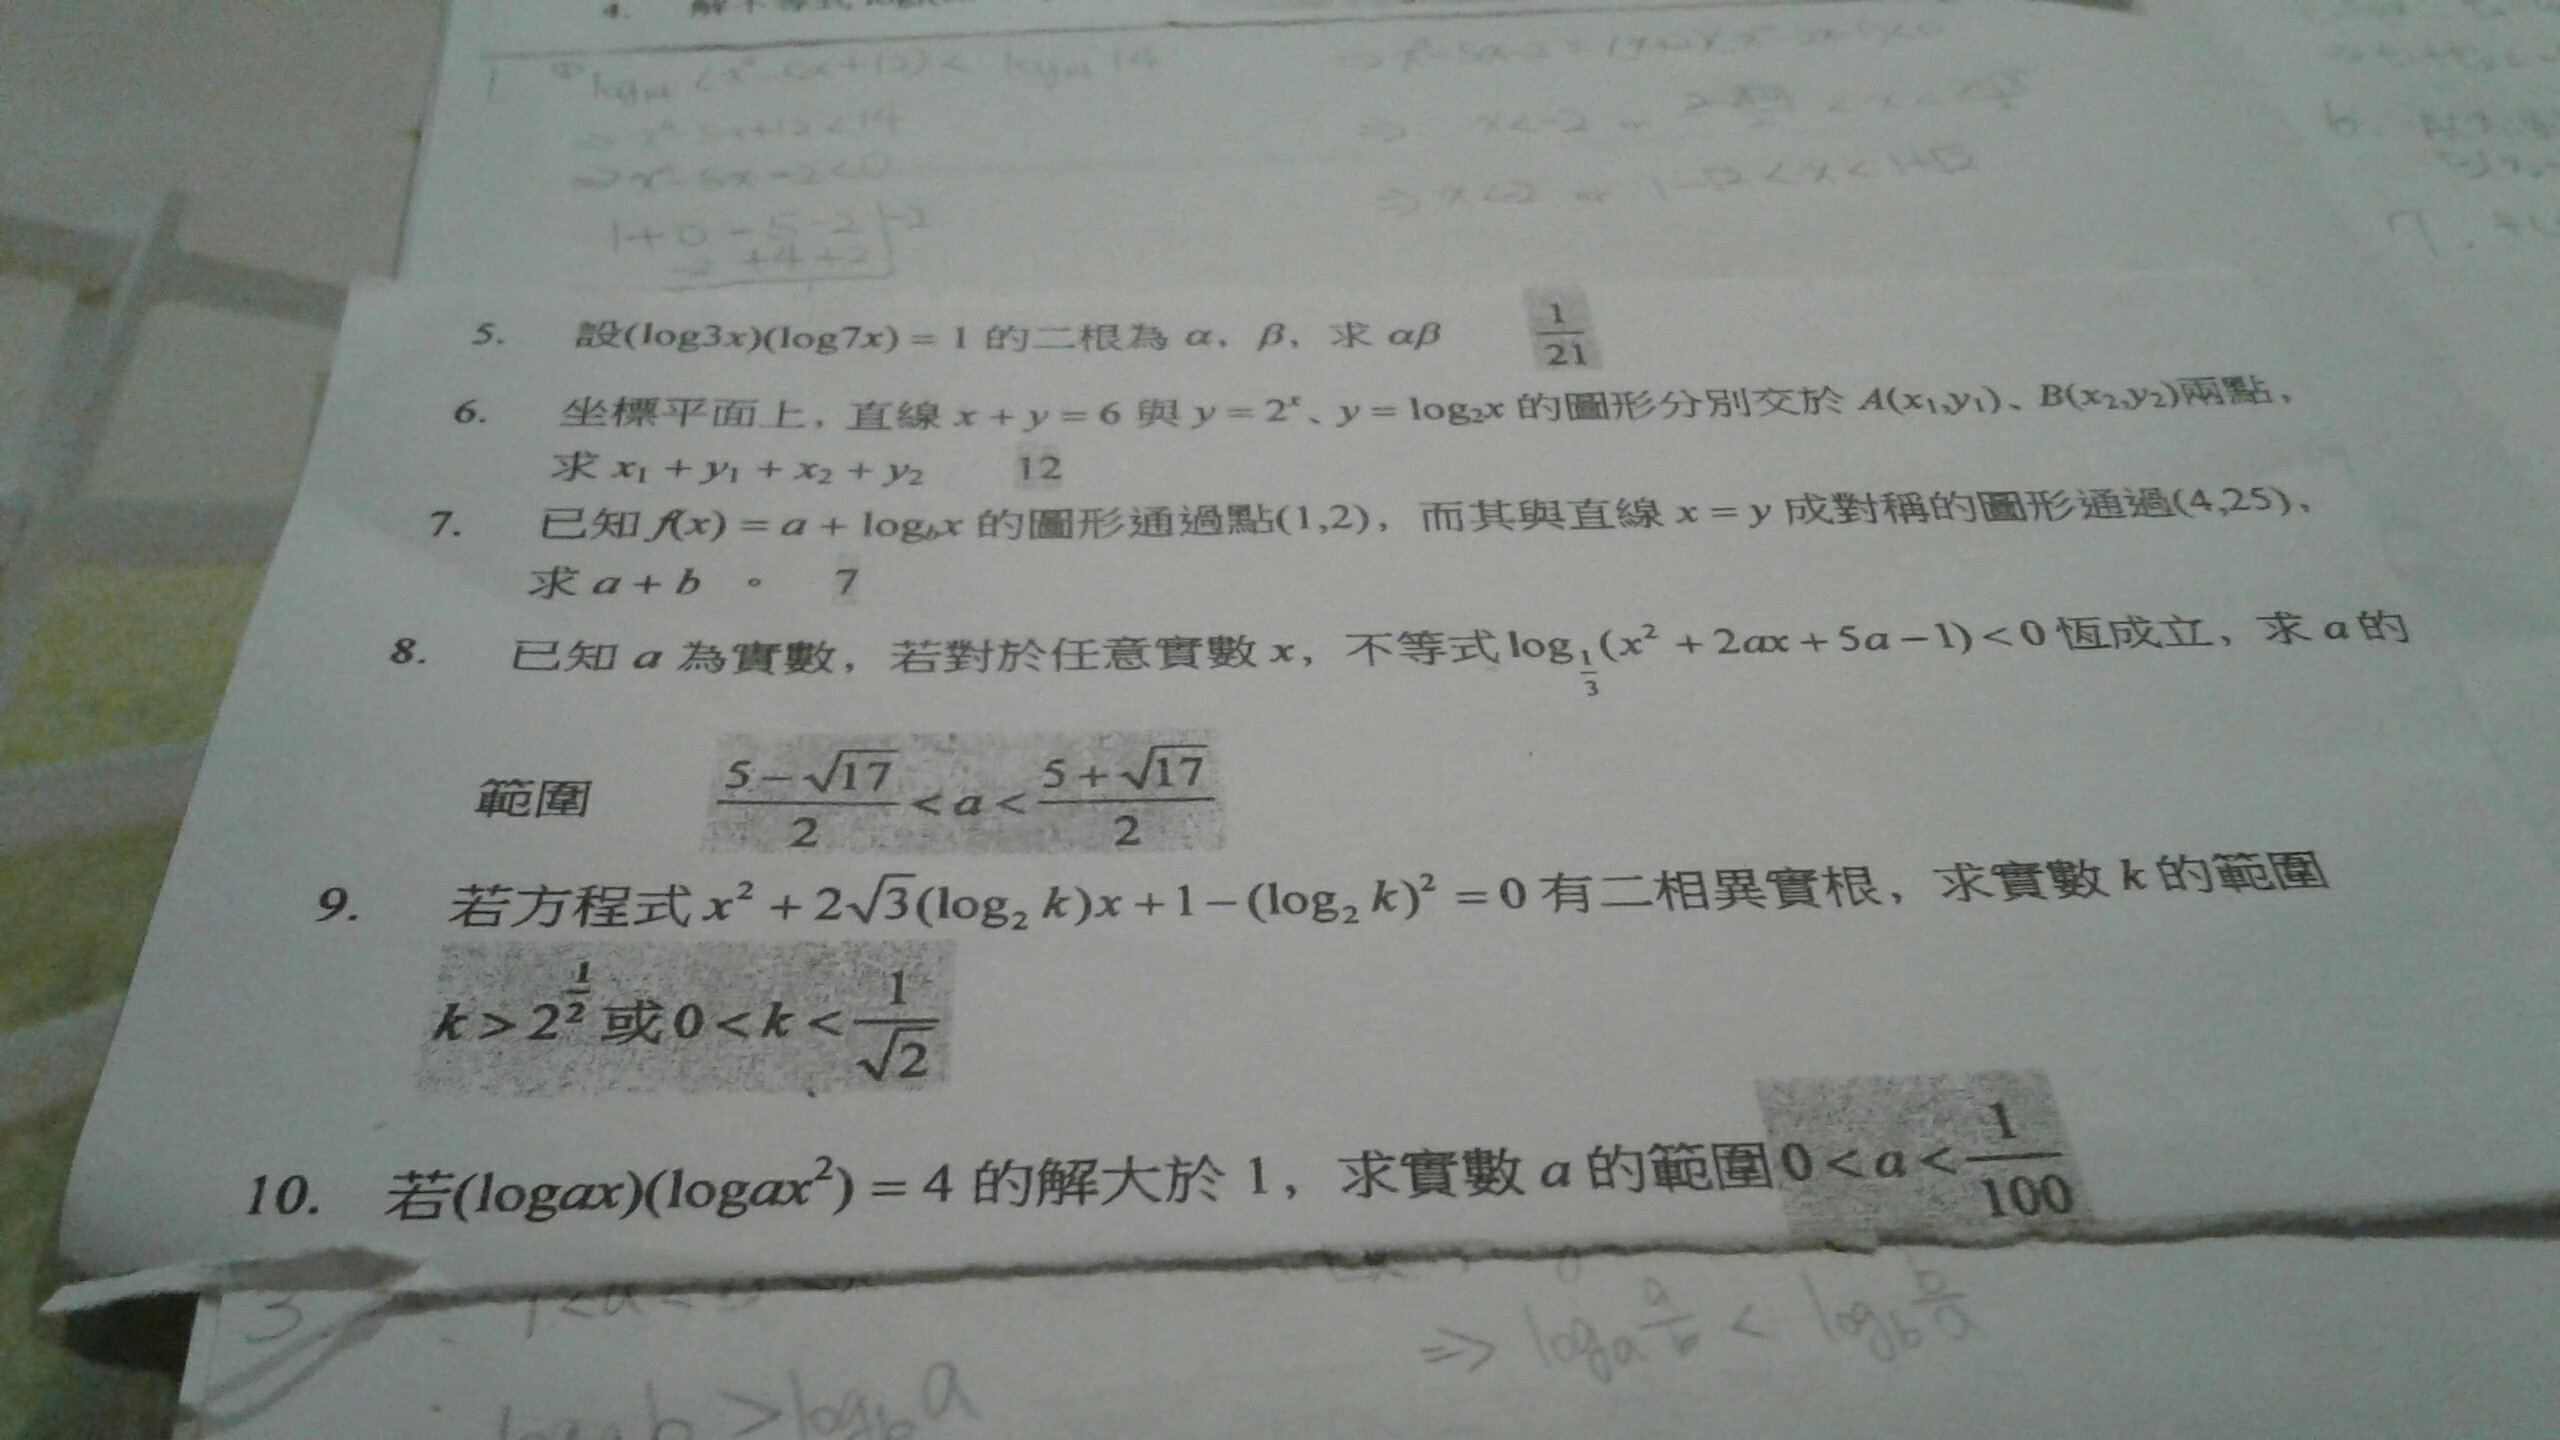 4.
1.
⇒ x²-5x-2<0
1+0-5-2 | -2
-2 +4+2
5. 設(log3x)(log7x) = 1 的二根為 α, β, 求 αβ 1/21
6. 坐標平面上, 直線 x + y = 6 與 y = 2ˣ、y = log₂x 的圖形分別交於 A(x₁,y₁)、B(x₂,y₂)兩點,
求 x₁ + y₁ + x₂ + y₂ 12
7. 已知 f(x) = a + log_b x 的圖形通過點(1,2), 而其與直線 x = y 成對稱的圖形通過(4,25),
求 a + b 。 7
8. 已知 a 為實數, 若對於任意實數 x, 不等式 log_{1/3}(x² + 2ax + 5a − 1) < 0 恆成立, 求 a 的
範圍 (5−√17)/2 < a < (5+√17)/2
9. 若方程式 x² + 2√3(log₂ k)x + 1 − (log₂ k)² = 0 有二相異實根, 求實數 k 的範圍
k > 2^{1/2} 或 0 < k < 1/√2
10. 若(logax)(logax²) = 4 的解大於 1, 求實數 a 的範圍 0 < a < 1/100
3
⇒ log_a a/b < log_b b/a
b > log_b a